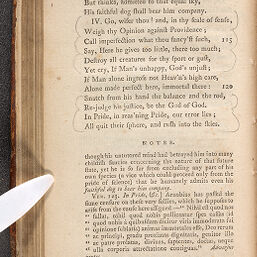 But thinks, admitted to that equal sky,
His faithful dog shall bear him company.
IV. Go, wiser thou! and, in thy scale of sense,
Weigh thy Opinion against Providence;
Call imperfection what thou fancy'st such, 115
Say, Here he gives too little, there too much;
Destroy all creatures for thy sport or gust,
Yet cry, If Man's unhappy, God's unjust;
If Man alone ingross not Heav'n's high care,
Alone made perfect here, immortal there: 120
Snatch from his hand the balance and the rod,
Re-judge his justice, be the God of God.
In Pride, in reas'ning Pride, our error lies;
All quit their sphere, and rush into the skies.
NOTES.
though his untutored mind had betrayed him into many
childish fancies concerning the nature of that future
state, yet he is so far from excluding any part of his
own species (a vice which could proceed only from the
pride of science) that he humanely admits even his
faithful dog to bear him company.
VER. 123. In Pride, &c.] Arnobius has passed the
same censure on these very follies, which he supposes to
arise from the cause here assigned. — "Nihil est quod nos
" fallat, nihil quod nobis polliceatur spes cassas
" quod nobis à quibusdam dicitur viris immoderata sui
" opinione sublatis) animas immortales esse, Deo rerum
" ac principi, gradu proximas dignitatis, genitore illo
" ac patre prolatas, divinas, sapientes, doctas, neque
" ulla corporis attrectatione contiguas." Adversus